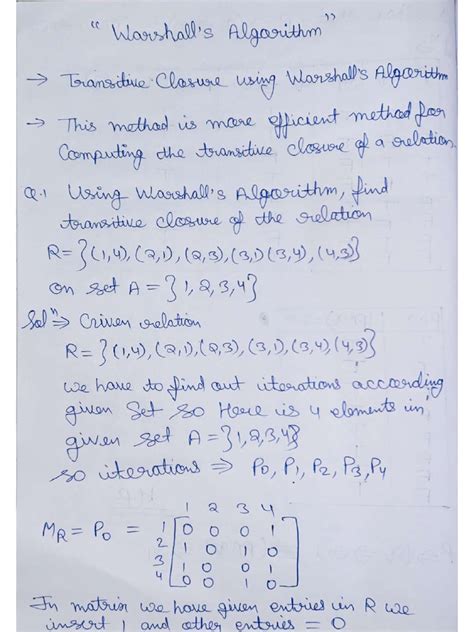 "Warshall's Algorithm"
→ Transitive Closure using Warshall's Algorithm
→ This method is more efficient method for
Computing the transitive closure of a relation.
Q.1 Using Warshall's Algorithm, find
transitive closure of the relation
R={(1,4),(2,1),(2,3),(3,1)(3,4),(4,3)}
on set A = {1,2,3,4}
Solⁿ⇒ Given relation
R={(1,4),(2,1),(2,3),(3,1),(3,4),(4,3)}
we have to find out iterations according
given Set so Here is 4 elements in
given set A={1,2,3,4}
so iterations ⇒ P0, P1, P2, P3, P4
1 2 3 4
MR = P0 = 1 [0 0 0 1
2 1 0 1 0
3 1 0 0 1
4 0 0 1 0]
In matrix we have given entries in R we
insert 1 and other entries = 0